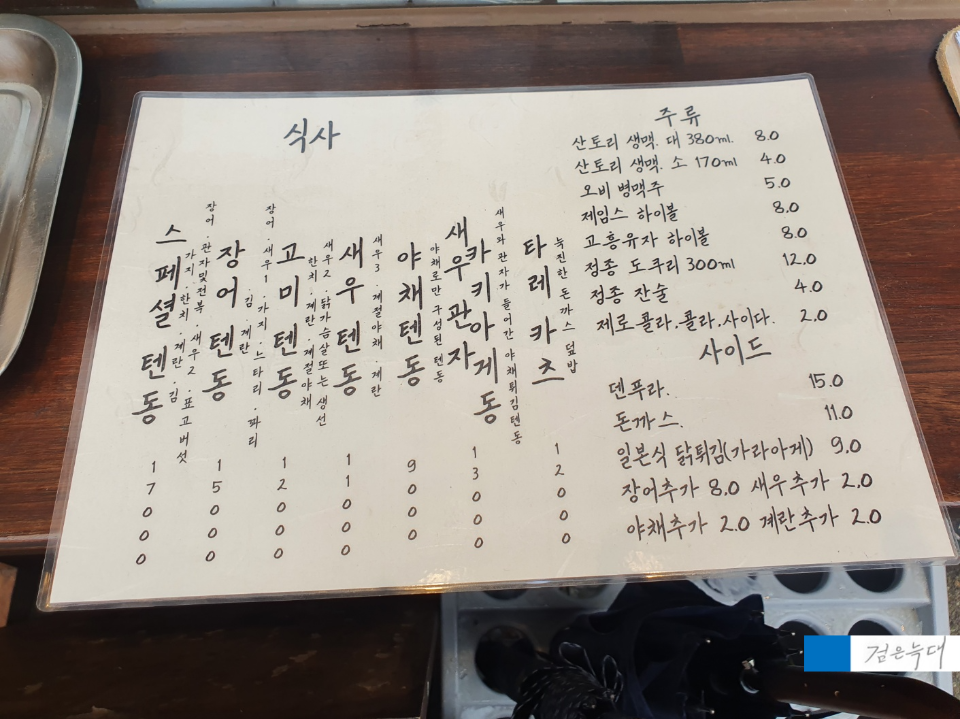 식사
스페셜텐동
장어.관자및전복.새우2.표고버섯
가지.한치.계란.김
17000
장어텐동
장어.새우1.가지.느타리.꽈리
김.계란
15000
고미텐동
새우2.닭가슴살또는생선
한치.계란.계절야채
12000
새우텐동
새우3.계절야채.계란
11000
야채텐동
야채로만 구성된 텐동
9000
새우관자
카키아게동
새우와 관자가 들어간 야채튀김텐동
13000
타레카츠
눅진한 돈까스 덮밥
12000
주류
산토리 생맥. 대 380ml. 8.0
산토리 생맥. 소 170ml 4.0
오비 병맥주 5.0
제임스 하이볼 8.0
고흥유자 하이볼 8.0
정종 도쿠리 300ml 12.0
정종 잔술 4.0
제로콜라.콜라.사이다. 2.0
사이드
덴푸라. 15.0
돈까스. 11.0
일본식 닭튀김(가라아게) 9.0
장어추가 8.0 새우추가 2.0
야채추가 2.0 계란추가 2.0
검은늑대